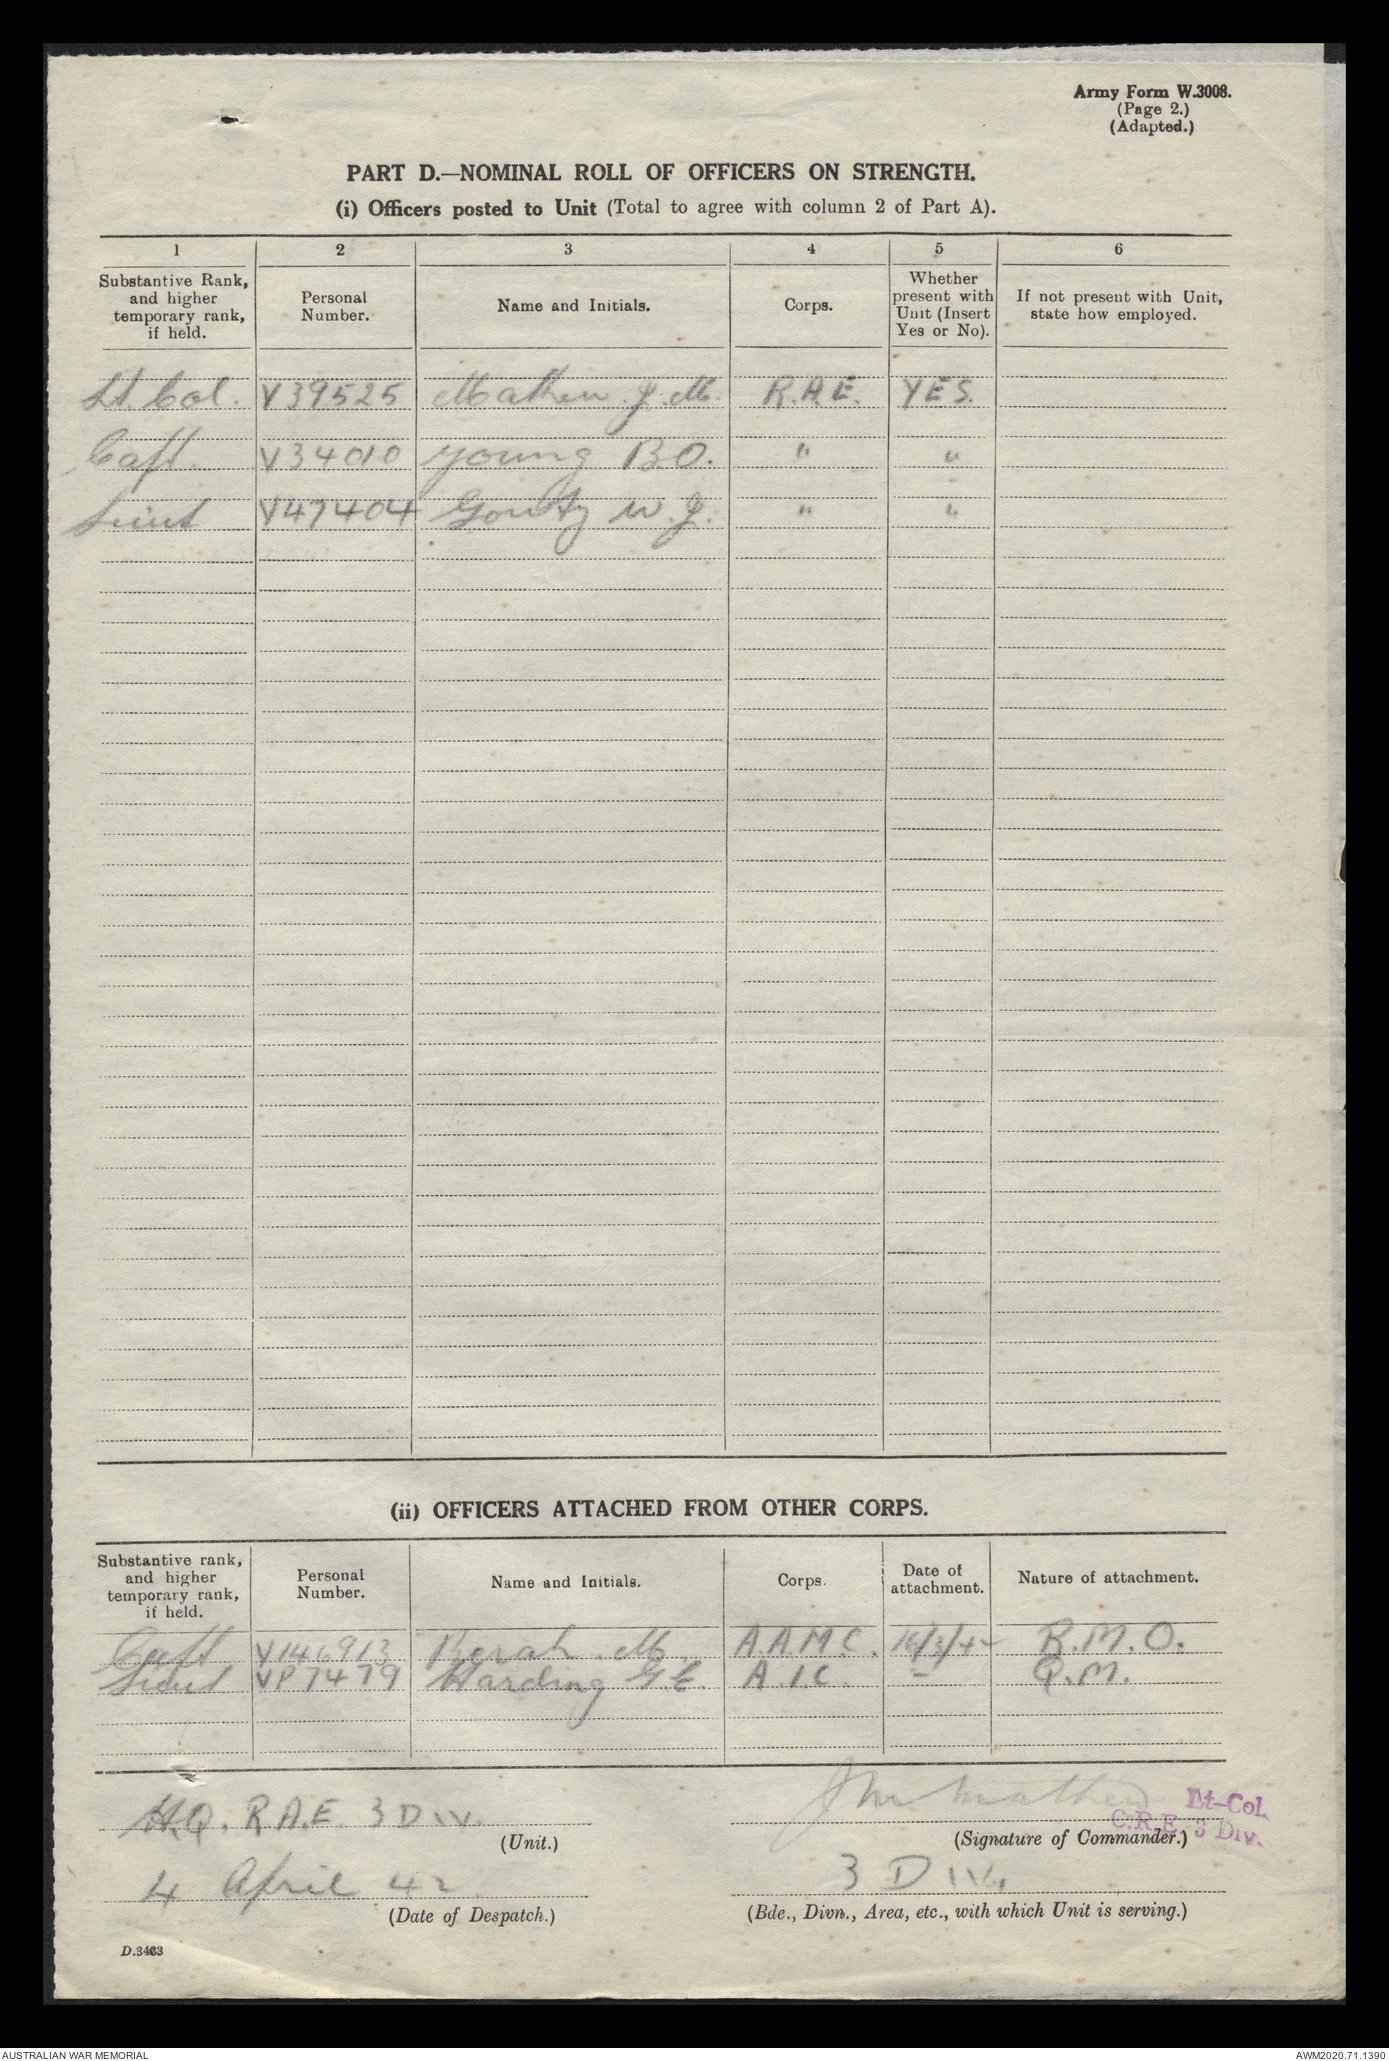 Army Form W.3008.
(Page 2.)
(Adapted.)
PART D.—NOMINAL ROLL OF OFFICERS ON STRENGTH.
(i) Officers posted to Unit (Total to agree with column 2 of Part A).
1 2 3 4 5 6
Substantive Rank, and higher temporary rank, if held. Personal Number. Name and Initials. Corps. Whether present with Unit (Insert Yes or No). If not present with Unit, state how employed.
Lt. Col. V39525 Mathew J.M. R.A.E. YES.
Capt. V34010 Young B.O. " "
Lieut V47404 W.J. " "
(ii) OFFICERS ATTACHED FROM OTHER CORPS.
Substantive rank, and higher temporary rank, if held. Personal Number. Name and Initials. Corps. Date of attachment. Nature of attachment.
Capt V146913 Berah. M. A.A.M.C. 16/3/42 R.M.O.
Lieut VP7479 Harding G.E. A.I.C. - Q.M.
H.Q. R.A.E. 3 DIV.
(Unit.)
J M Mathew Lt-Col.
C.R.E. 3 Div.
(Signature of Commander.)
4 April 42
(Date of Despatch.)
3 DIV.
(Bde., Divn., Area, etc., with which Unit is serving.)
D.3463
AUSTRALIAN WAR MEMORIAL
AWM2020.71.1390